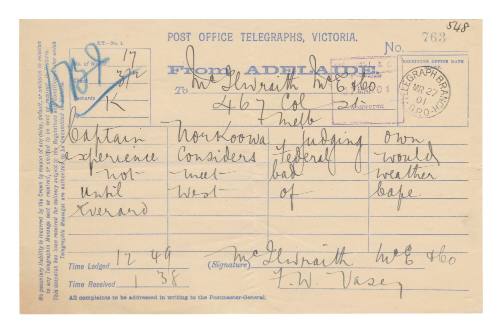 548
R.T.—No. 1.
POST OFFICE TELEGRAPHS, VICTORIA.
No. 763
17
3/2
K
From ADELAIDE.
To McIlwraith McE & Co
467 Col St
Melb
RECEIVING OFFICE DATE
TELEGRAPH BRANCH
MR 27
01
Captain Norkoowa judging own
experience Considers Federal would
not meet bad weather
until West of Cape
Everard
Time Lodged 12 49
Time Received 1 38
(Signature) McIlwraith McE & Co
F. W. Vasey
All complaints to be addressed in writing to the Postmaster-General.